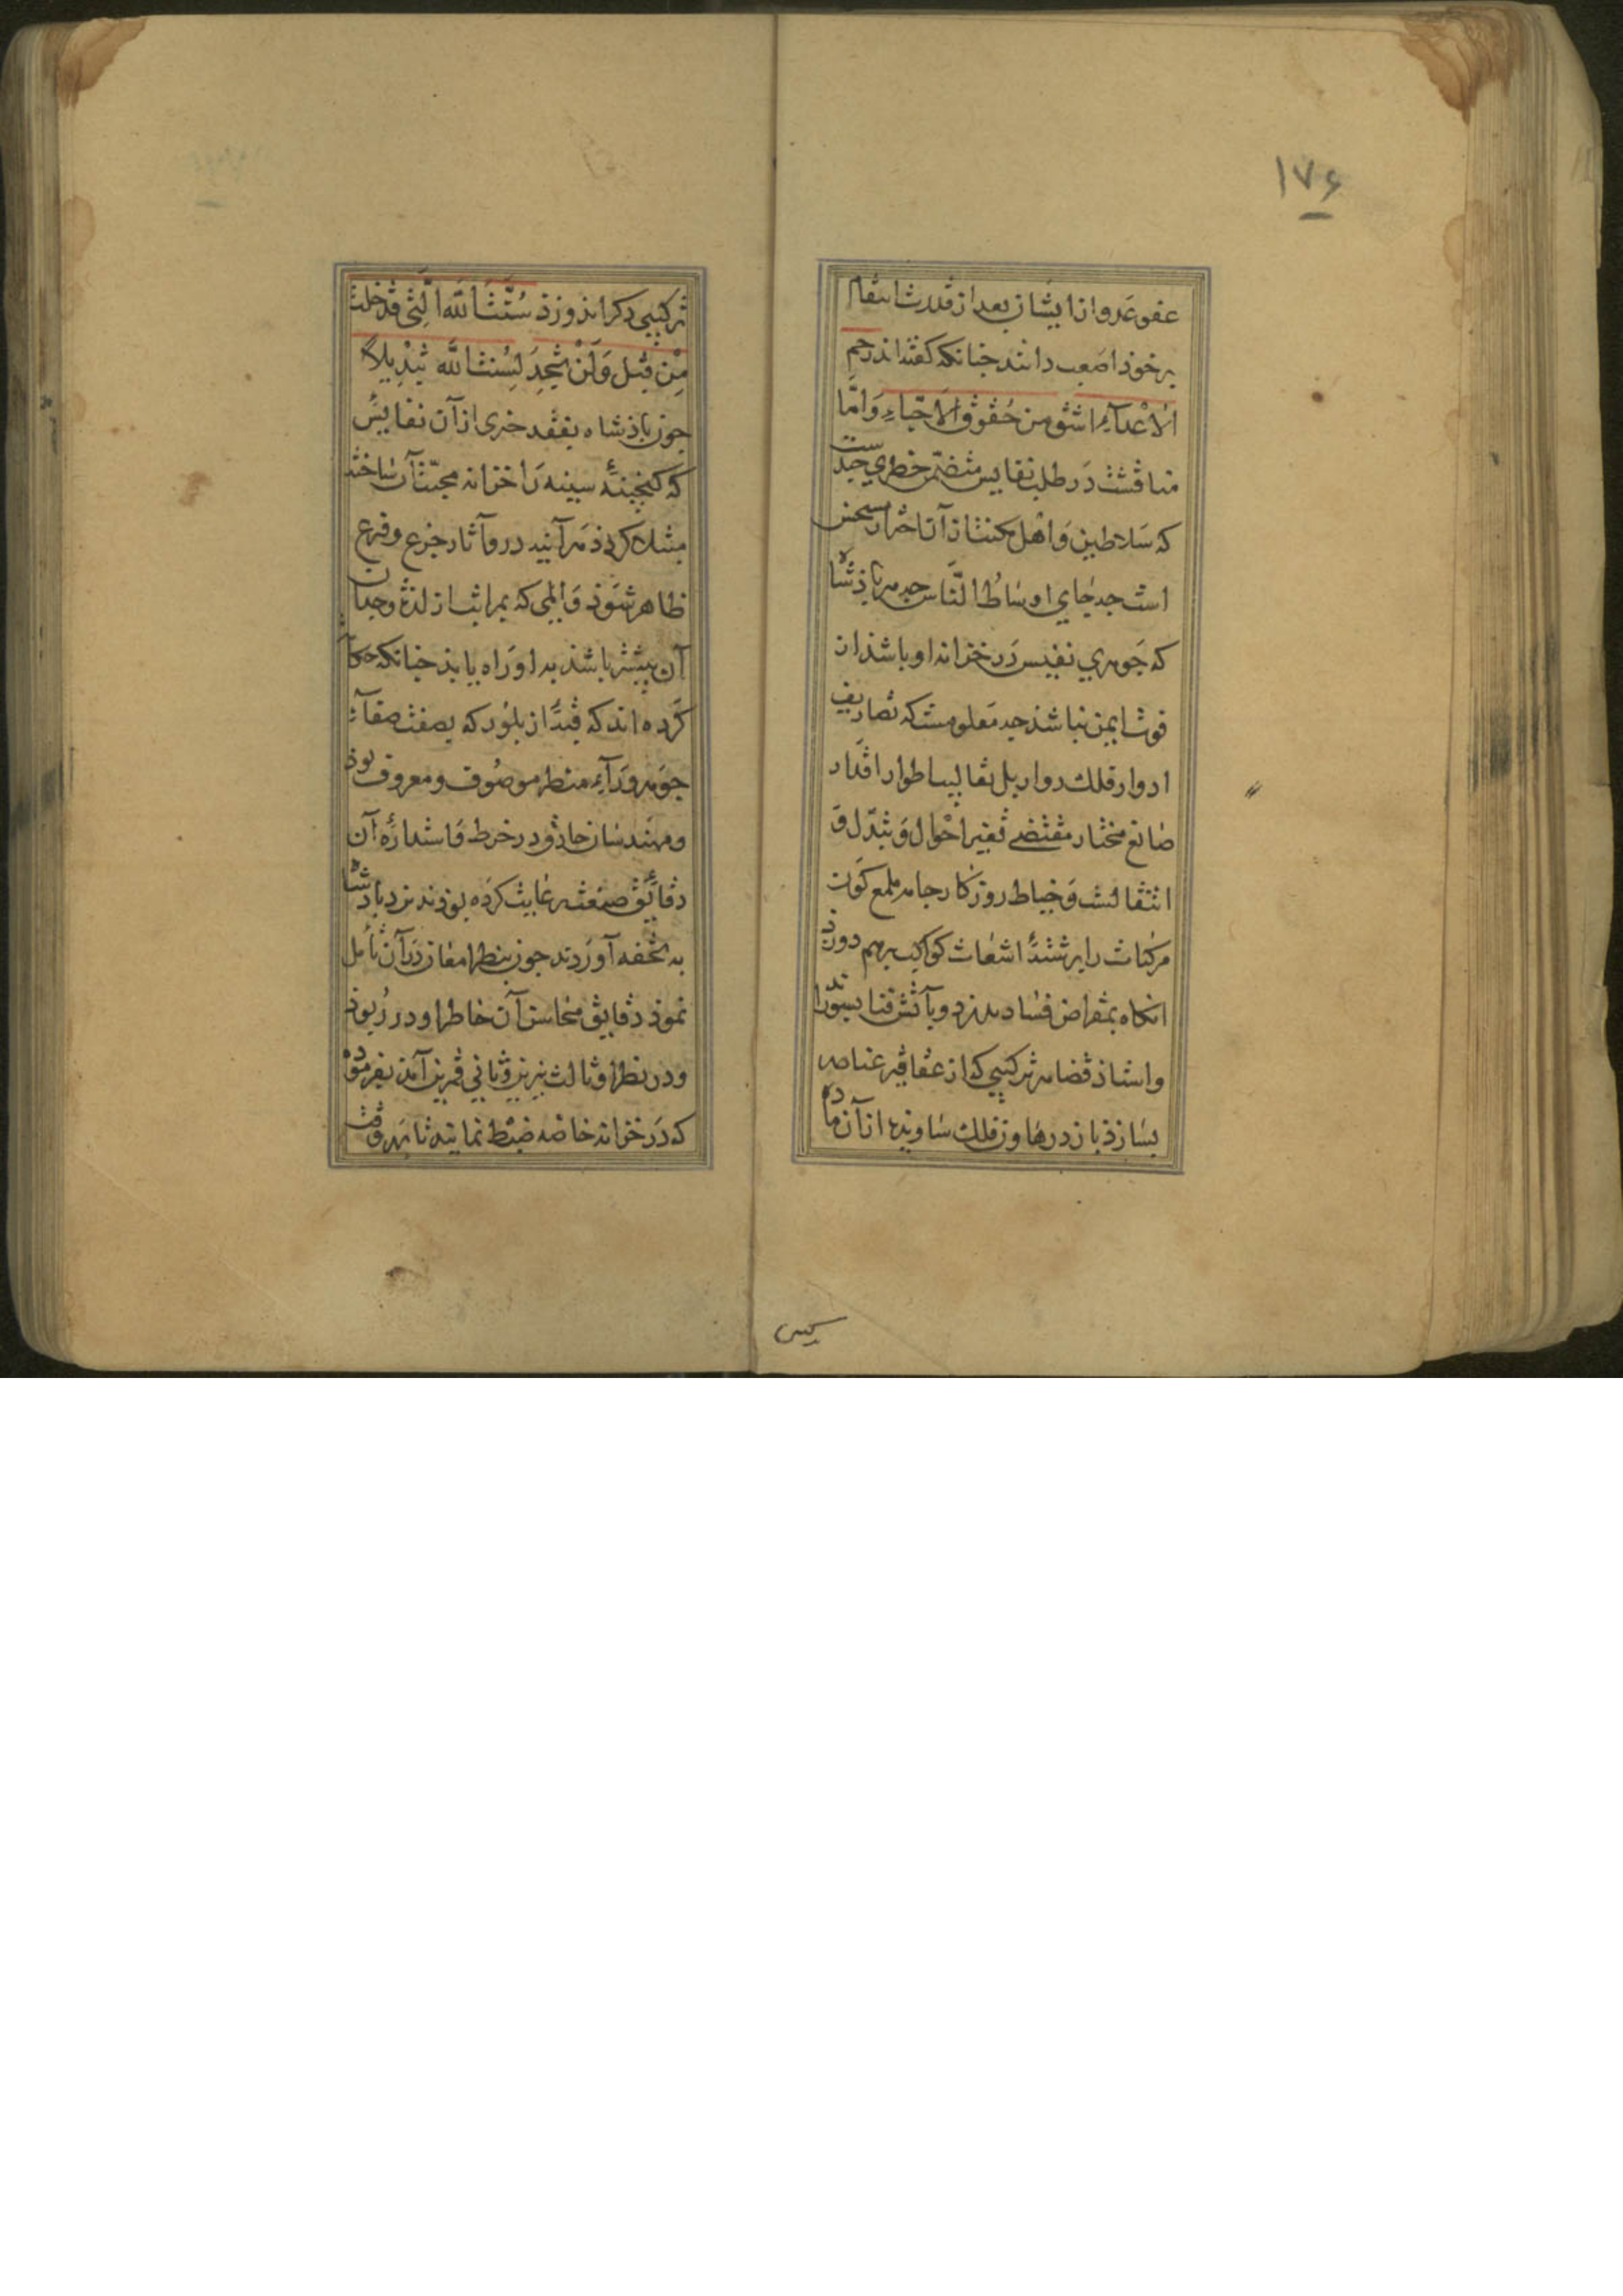 ۱۷۶
عفو عدو از ایشان بعد از قدرت انتقام
بر خوذ اصعب دانند جنانکه کفته اند رحم
الاعداء اشق من حقوق الاحباء وامّا
مناقشت در طلب نفایس متضمّن خطری جندست
که سلاطین و اهل مکنت از آن احتراز
است جه جای اوساط النّاس جه مر باذشاه
که جوهری نفیس در خزانه او باشذ از
فوت ایمن نباشذ جه معلومست که تصاریف
ادوار فلک دوار بل تقالیب اطوار اقدار
صانع مختار مقتضی تغیر احوال و تبدّل و
انتقالست و خیاط روزکار جامه ملمع کون
مرکبات را برشتهٔ اشعات کواکب برهم دوزذ
انکاه بمقراض فساد بدرد و بآتش فنا بسوزاند
واستاذ قضا هر ترکیبی که از عقاقیر عناصر
بسازذ باز در هاون فلک ساوید از آن ماده
ترکیبی دکر اندوزذ سُنَّتَ اللَّهِ الَّتِی قَدْ خَلَتْ
مِنْ قَبْلُ وَلَنْ تَجِدَ لِسُنَّتِ اللَّهِ تَبْدِیلاً
جون باذشاه بفقد جزی از آن نفایس
که کنجینهٔ سینه را خزانه محبّت آن ساخته
مبتلا کردذ هر آینه درو آثار جزع و فزع
ظاهر شوذ و المی که بمراتب از لذّت وجدان
آن بیشتر باشذ بدو راه یابذ جنانکه حکایت
کرده اند که قبّهٔ از بلور که بصفت صفاء
جوهر و رداء منظر موصوف و معروف بوذ
و مهندسان حاذق در خرط و استدارهٔ آن
دقایق صنعت رعایت کرده بوذند نزد باذشاه
به تحفه آوردند جون بنظر امعان در آن تأمل
نموذ دقایق محاسن آن خاطر او در ربوذ
و در نظر او ثالث نیرین و ثانی قمرین آمذ بفرموذ
که در خزانه خاصّه ضبط نمایند تا بهر وقت